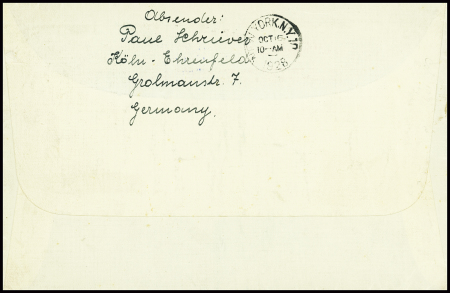 Absender:
Paul Schriever
Köln-Ehrenfeld
Grolmanstr. 7.
Germany.
NEW YORK, N.Y.
OCT
10-AM